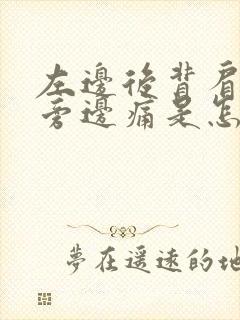 左邊後背肩
旁邊痛是怎
夢在遥遠的地